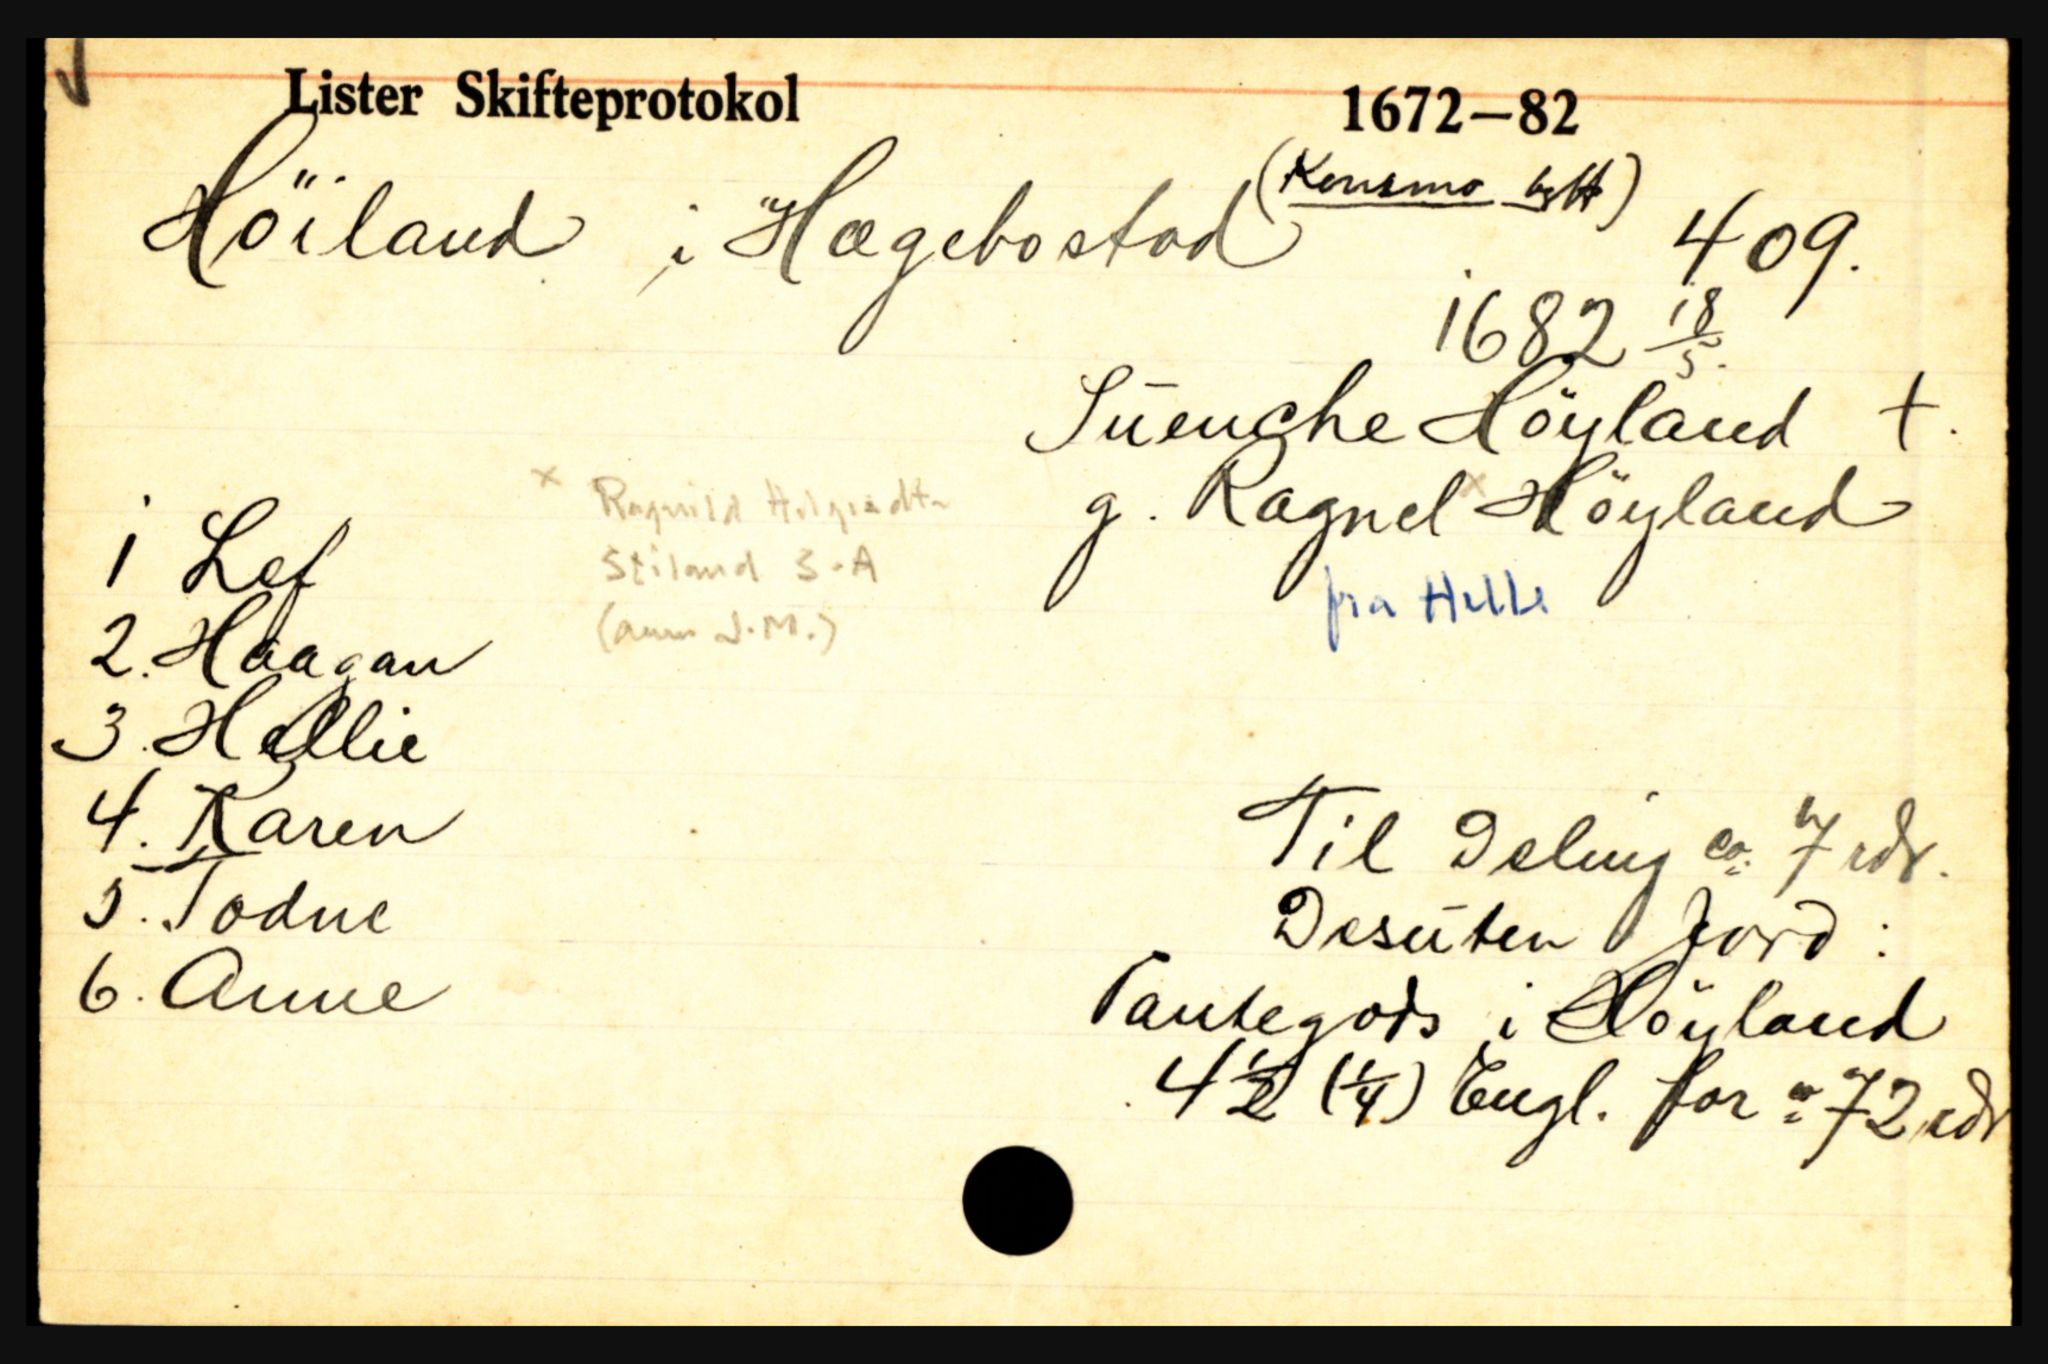 Lister Skifteprotokol 1672—82
Höiland i Hægebostad (Konsmo 409.
1682 18/5.
Suenche Höyland †.
g. Ragnel × Höyland
fra Helle
× Ragnild
Stiland S-A
(aum J.M.)
1 Lef
2. Haagan
3. Hellie
4. Karen
5. Todne
6. Anne
Til Deling ca. 7 rdr.
Desuten Jord:
Pantegods i Höyland
4 1/2 (1/4) Engl. for ca 72 rdr